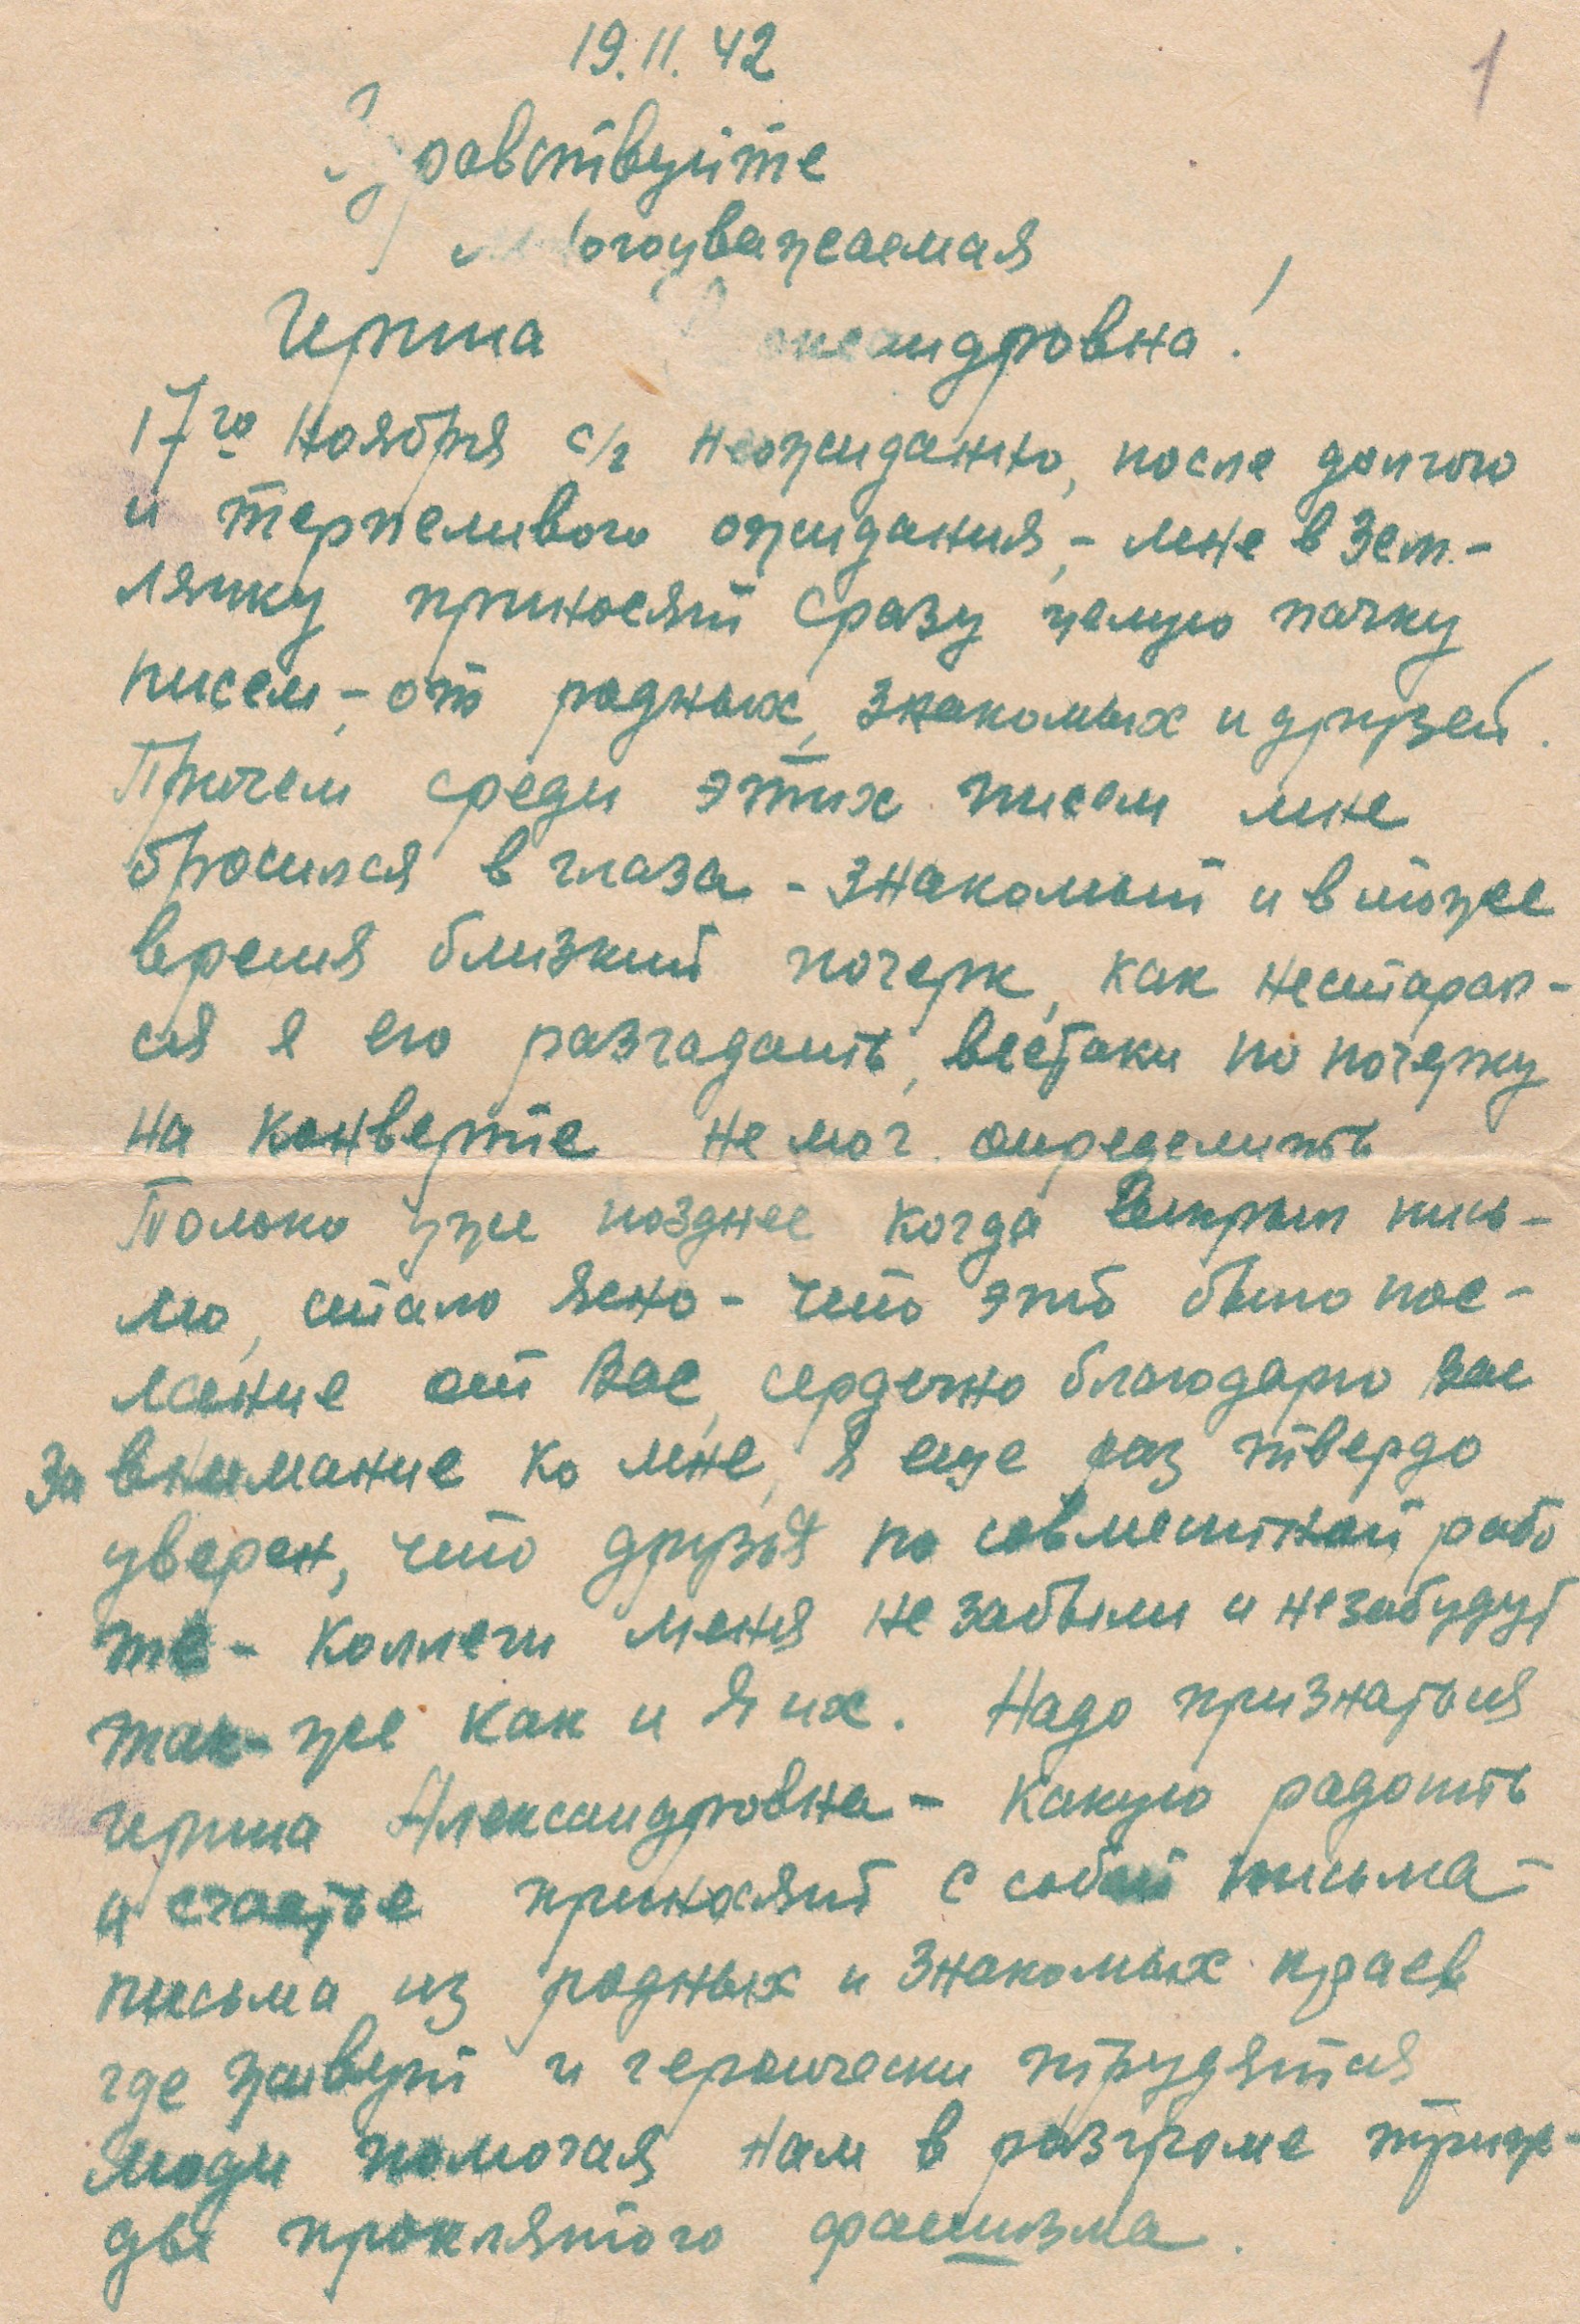 19.11.42
1
Здравствуйте
Многоуважаемая
Ирина Александровна!
17го Ноября с/г неожиданно, после долгого
и терпеливого ожидания, - мне в Зем-
лянку приносят сразу целую пачку
писем, - от родных, знакомых и друзей.
Причем среди этих писем мне
бросился в глаза - знакомый и в тоже
время близкий почерк, как нестарал-
ся я его разгадать, всетаки по почерку
на конверте не мог определить
Только уже позднее когда вскрыл пись-
мо, стало ясно - что это было пос-
лание от Вас, сердечно благодарю Вас
за внимание ко мне, я еще раз твердо
уверен, что друзья по совместной рабо
те - коллеги меня не забыли и незабудут
так-же как и я их. Надо признаться
Ирина Александровна - какую радость
и счастье приносят с собой письма -
письма из родных и знакомых краев
где живут и героически трудятся
люди помогая нам в разгроме триж-
ды проклятого фашизма.